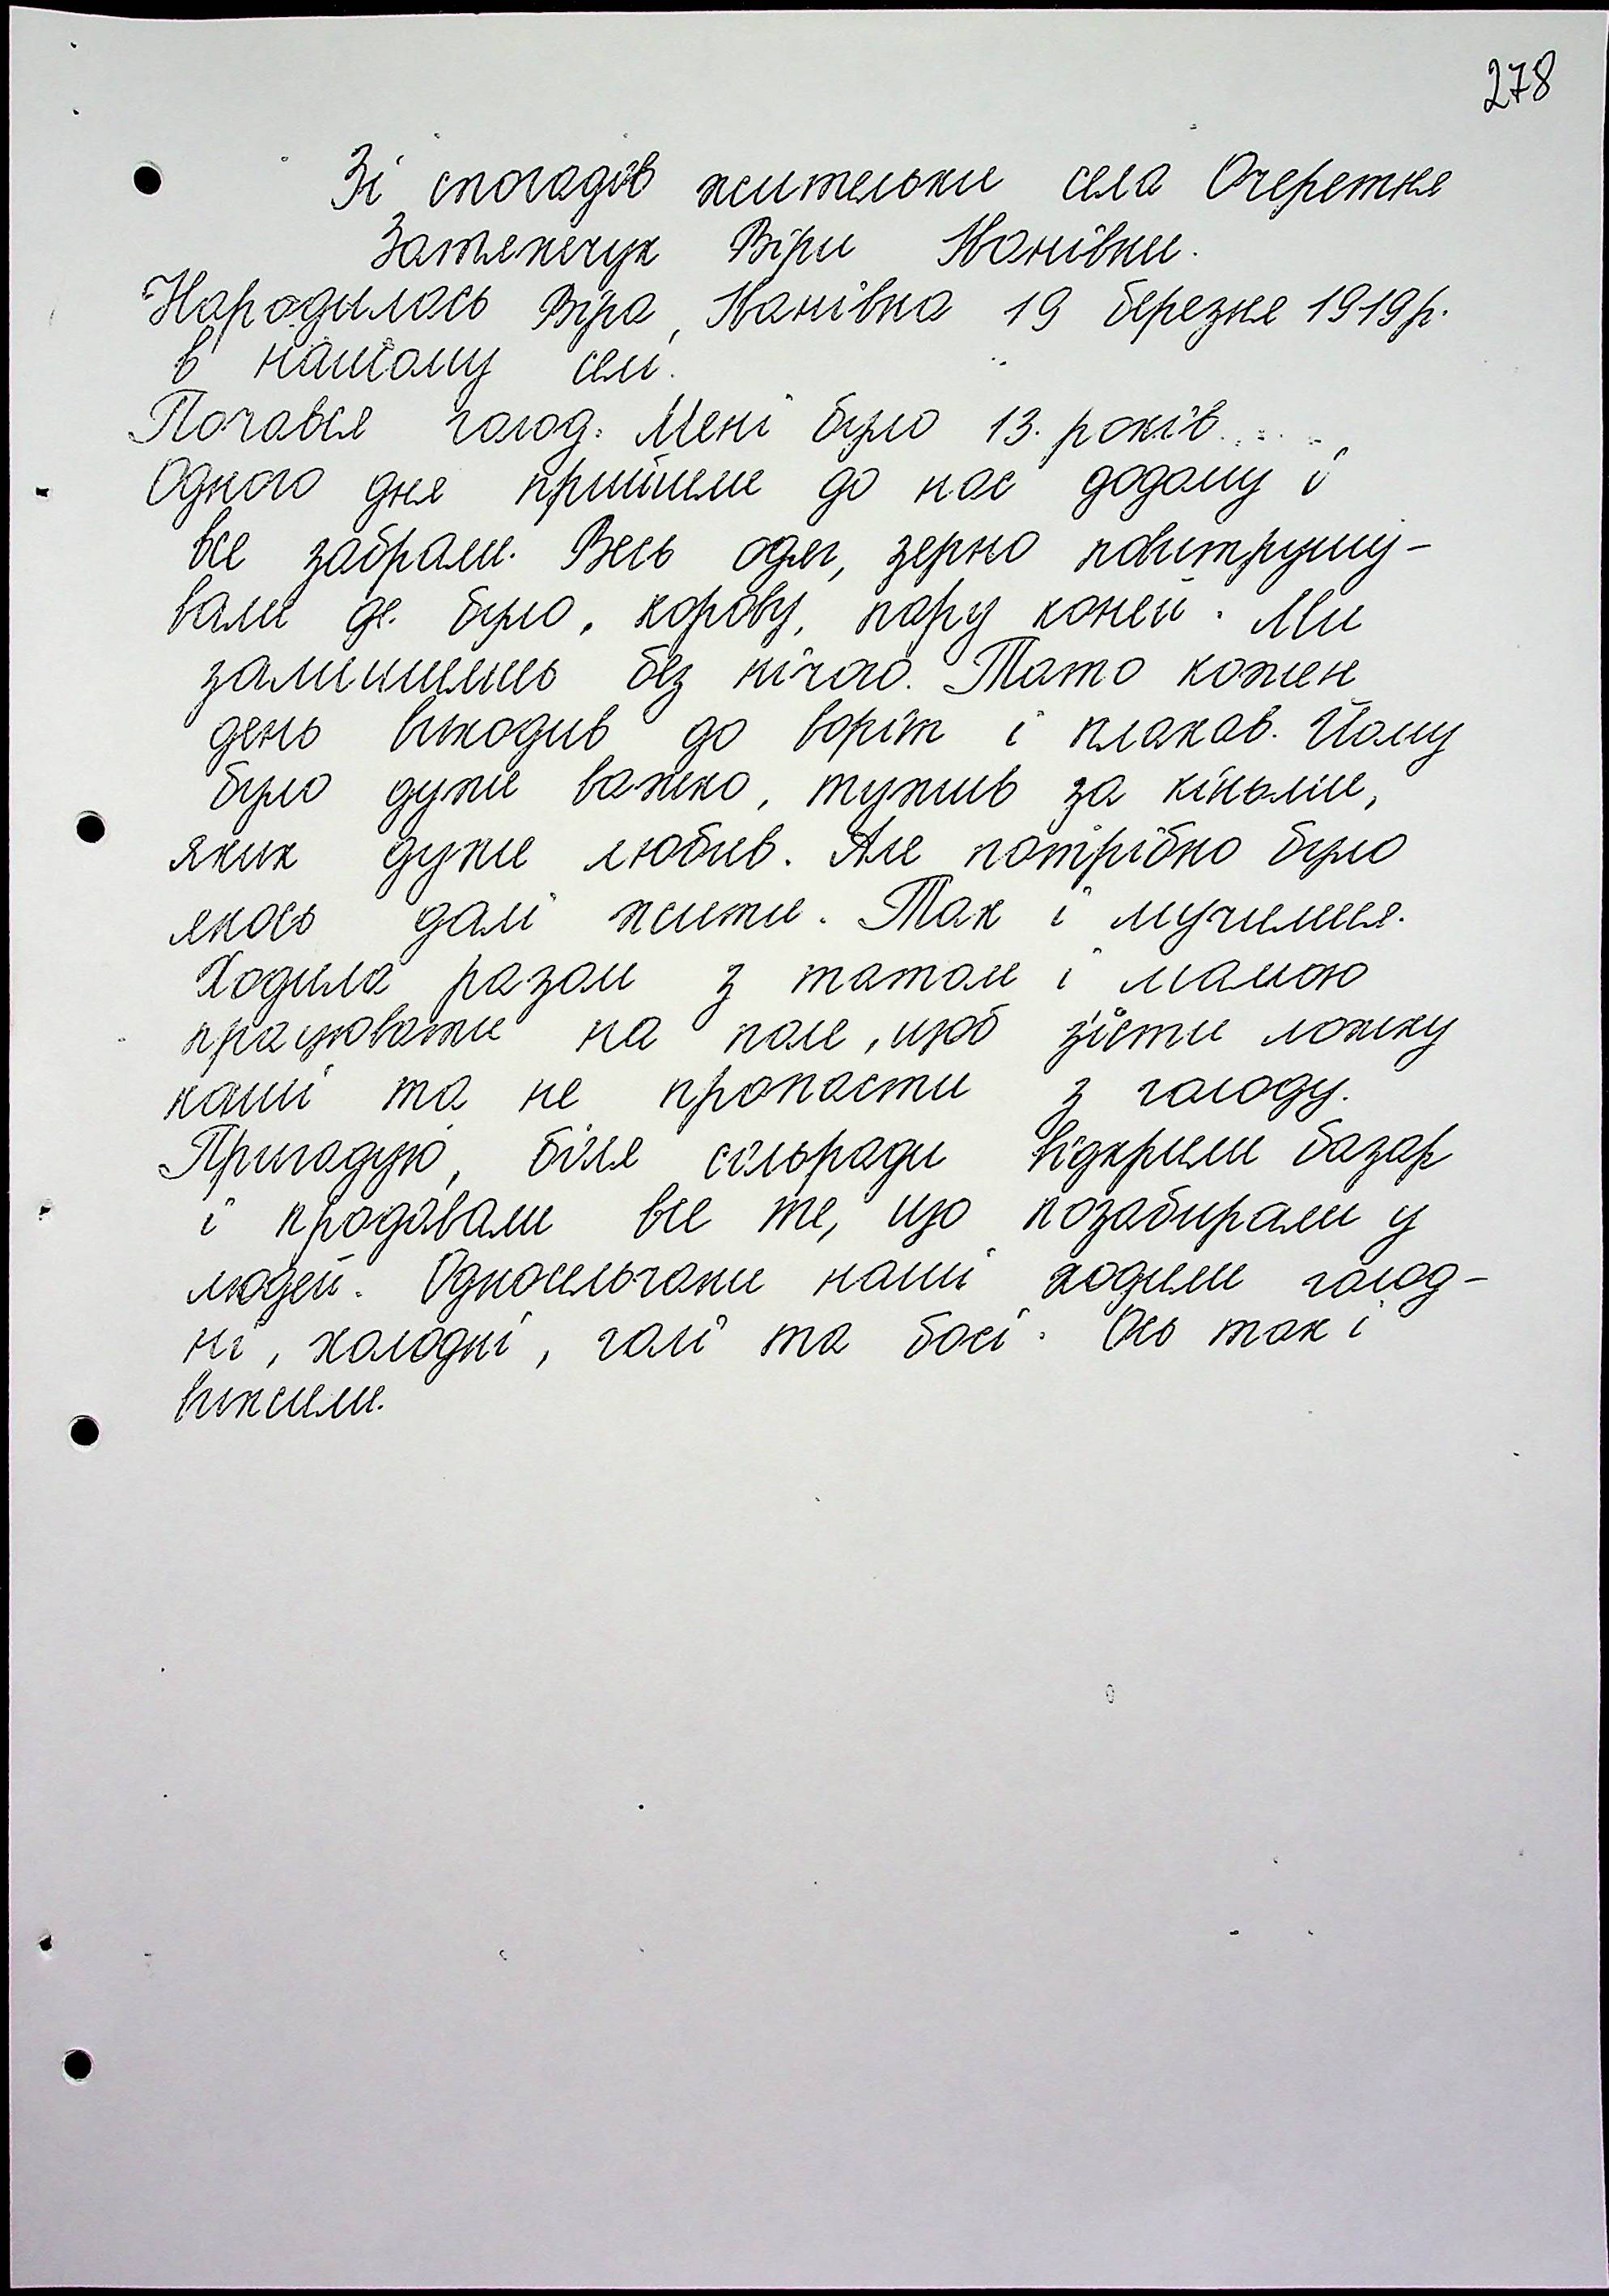 278
Зі спогадів жительки села Очеретня
Затяпічук Віри Іванівни.
Народилась Віра Іванівна 19 березня 1919 р.
в нашому селі.
Почався голод. Мені було 13 років...
Одного дня прийшли до нас додому і
все забрали. Весь одяг, зерно повитрушу-
вали де було, корову, пару коней. Ми
залишились без нічого. Тато кожен
день виходив до воріт і плакав. Йому
було дуже важко, тужив за кіньми,
яких дуже любив. Але потрібно було
якось далі жити. Так і мучились.
Ходила разом з татом і мамою
працювати на поле, щоб з'їсти ложку
каші та не пропасти з голоду.
Пригадую, біля сільради відкрили базар
і продавали все те, що позабирали у
людей. Односельчани наші ходили голод-
ні, холодні, голі та босі. Ось так і
вижили.